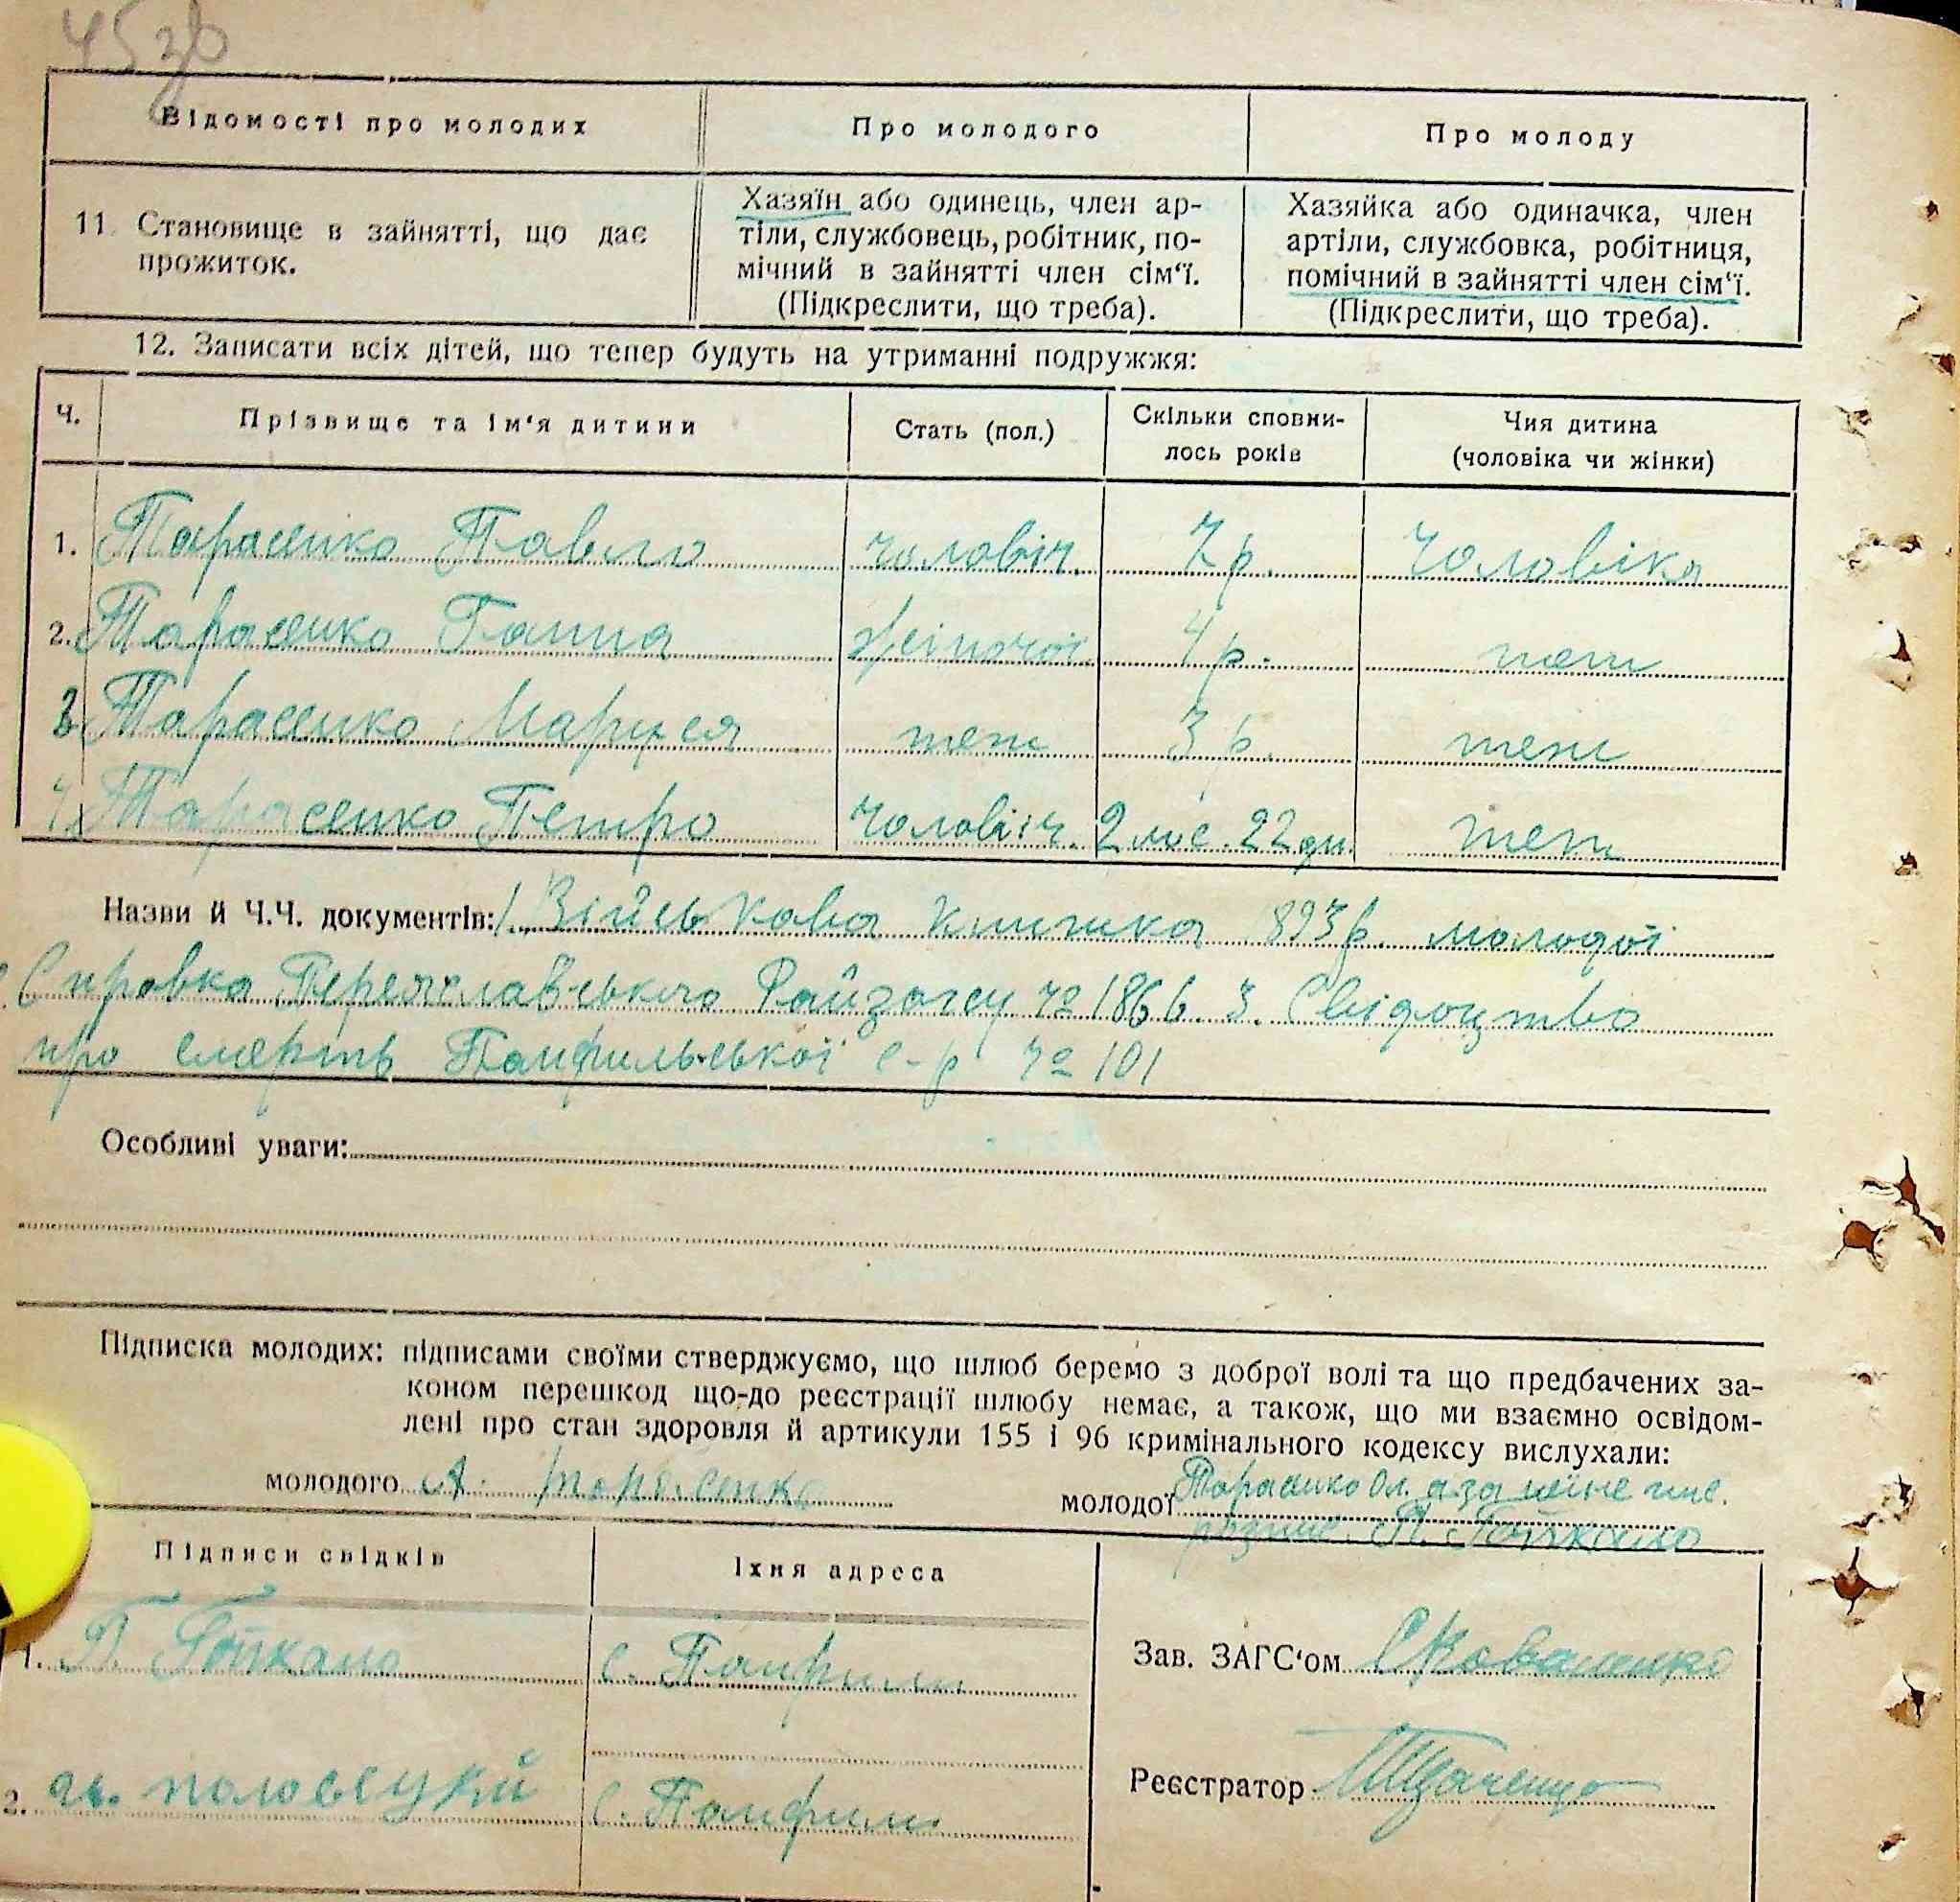 45 зв
Відомості про молодих
Про молодого
Про молоду
11. Становище в зайнятті, що дає
прожиток.
Хазяїн або одинець, член ар-
тіли, службовець, робітник, по-
мічний в зайнятті член сім‘ї.
(Підкреслити, що треба).
Хазяйка або одиначка, член
артіли, службовка, робітниця,
помічний в зайнятті член сім‘ї.
(Підкреслити, що треба).
12. Записати всіх дітей, що тепер будуть на утриманні подружжя:
Ч.
Прізвище та ім‘я дитини
Стать (пол.)
Скільки сповни-
лось років
Чия дитина
(чоловіка чи жінки)
1. Тарасенко Павло чоловіч. 7 р. чоловіка
2. Тарасенко Ганна жіночої 4 р. теж
3. Тарасенко Маруся теж 3 р. теж
4. Тарасенко Петро чоловіч. 2 міс. 22 дн. теж
Назви й Ч.Ч. документів: 1. Військова книжка 893 р. молодої
2. Справка Переяславського Райзагсу № 1866. 3. Свідоцтво
про смерть Панфильської с-р № 101
Особливі уваги:
Підписка молодих: підписами своїми стверджуємо, що шлюб беремо з доброї волі та що предбачених за-
коном перешкод що-до реєстрації шлюбу немає, а також, що ми взаємно освідом-
лені про стан здоровля й артикули 155 і 96 кримінального кодексу вислухали:
молодого А. Тарасенко
молодої Тарасенко Ол. а за неї не пис.
розпис. П. Гойкало
Підписи свідків
Їхня адреса
1. П. Гойкало с. Панфили
Зав. ЗАГС‘ом С Коваленко
2. половецкий с. Панфили
Реєстратор